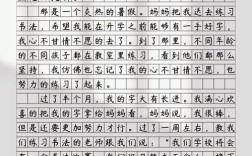 那是一个炎热的暑假。妈妈把我送去练习
书法，希望我能在升学之前能够有一手好字，
我心不甘情不愿的去了。到了那里，不同年龄
的不同孩子都在教室里练习，看到他们都那么
坚持，我仿佛也忘记了我的心不甘情不愿，也
努力的练习了起来。
过了半个月，我的字大有长进。我满心欢
喜的把我的字拿给妈妈看，妈妈说，我很棒，
但是还要更加努力才行。过了一周左右，教我
们练习书法的老师跟我们说：“我们学校将会